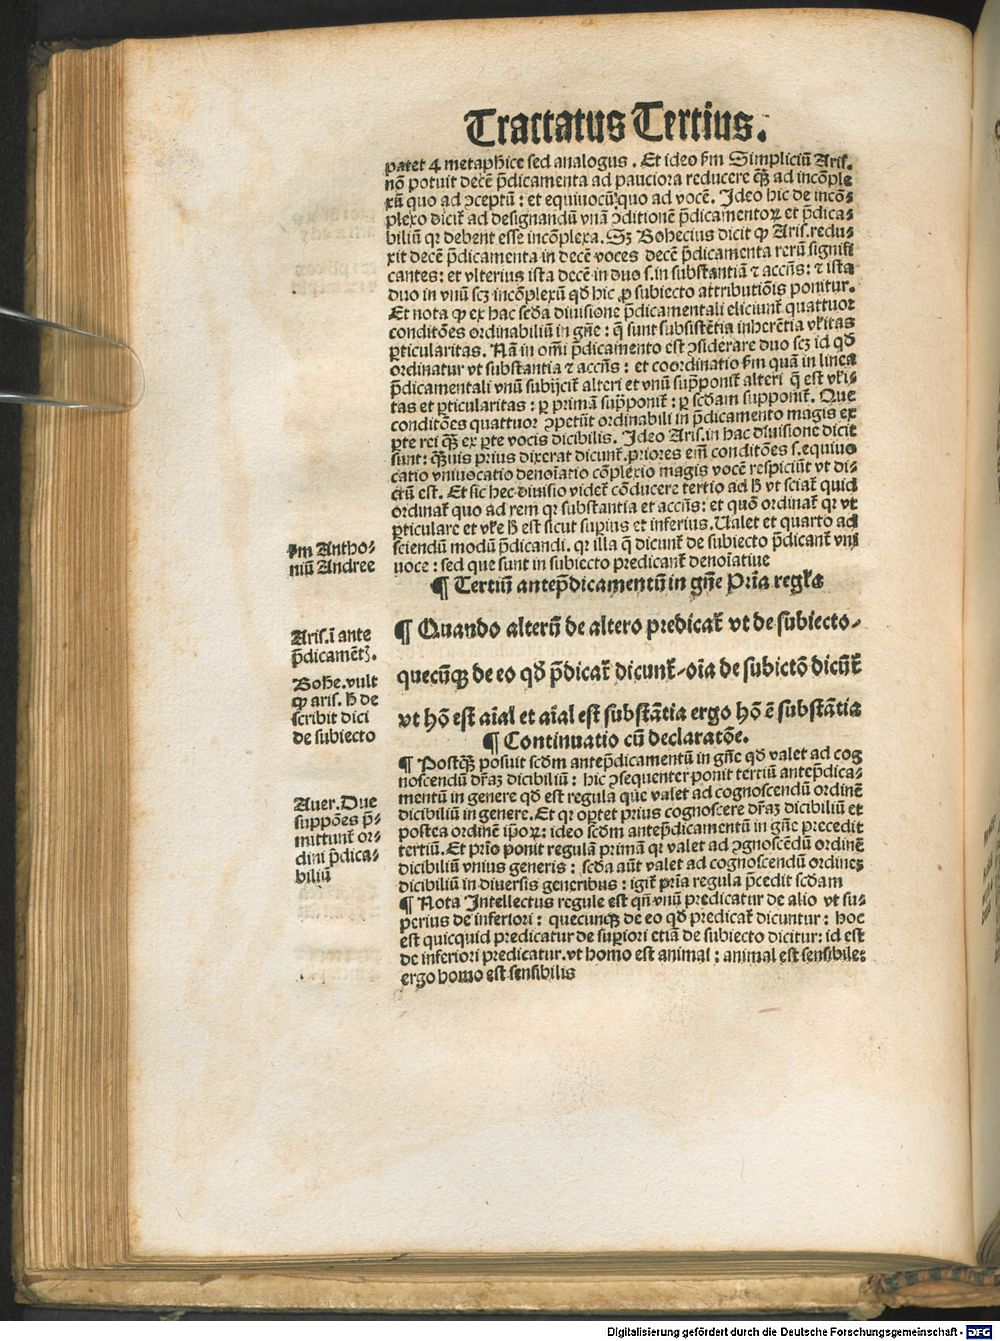 Tractatus Tertius.
patet 4 metaphice sed analogus. Et ideo ẜm Simpliciū Arif.
nō potuit decē p̄dicamenta ad pauciora reducere qꝫ ad incōple
xū quo ad ꝯceptū : et equiuocū quo ad vocē. Ideo hic de incō-
plexo dicit̄ ad designandū vnā ꝯditionē p̄dicamentoꝝ et p̄dica-
biliū qꝛ debent esse incōplexa. Sꝫ Bohecius dicit ꝙ Aris. redu-
xit decē p̄dicamenta in decē voces decē p̄dicamenta rerū signifi
cantes: et vlterius ista decē in duo s. in substantiā ⁊ accn̄s: ⁊ ista
duo in vnū scꝫ incōplexū qđ hic ꝓ subiecto attributiōis ponitur.
Et nota ꝙ ex hac scđa diuisione p̄dicamentali eliciunt̄ quattuor
conditōes ordinabiliū in gn̄e : q̄ sunt subsistētia inherētia vl̄itas
ꝑticularitas. Nā in om̄i p̄dicamento est ꝯsiderare duo scꝫ id qđ
ordinatur vt substantia ⁊ accn̄s : et coordinatio ẜm quā in linea
p̄dicamentali vnū subijcit̄ alteri et vnū sup̄ponit̄ alteri q̄ est vl̄i-
tas et ꝑticularitas : ꝑ primā sup̄ponit̄ : ꝑ scđam supponit̄. Que
conditōes quattuor ꝯpetūt ordinabili in p̄dicamento magis ex
ꝑte rei qꝫ ex ꝑte vocis dicibilis. Ideo Aris. in hac diuisione dicit
sunt: qꝫuis prius dixerat dicunt̄. priores em̄ conditōes s. equiuo
catio vniuocatio denoīatio cōplexio magis vocē respiciūt vt di-
ctū est. Et sic hec diuisio videt̄ cōducere tertio ad ħ vt sciat̄ quid
ordinat̄ quo ad rem qꝛ substantia et accn̄s: et quō ordinat̄ qꝛ vt
ꝑticulare et vl̄e ħ est sicut supius et inferius. Ualet et quarto ad
sciendū modū p̄dicandi. qꝛ illa q̄ dicunt̄ de subiecto p̄dicant̄ vni
uoce : sed que sunt in subiecto predicant̄ denoīatiue
ẜm Antho-
niū Andree
¶ Tertiū antep̄dicamentū in gn̄e Pr̄ia regl̄a
¶ Quando alterū de altero predicat̄ vt de subiecto-
quecūqꝫ de eo qđ p̄dicat̄ dicunt̄-oīa de subictō dicūt̄
vt hō est aīal et aīal est substātia ergo hō ē substātia
Aris. ī ante
p̄dicamētꝭ.
Bohe. vult
ꝙ aris. ħ de
scribit dici
de subiecto
¶ Continuatio cū declaratōe.
¶ Postqꝫ posuit scđm antep̄dicamentū in gn̄e qđ valet ad cog
noscendū dr̄az dicibiliū : hic ꝯsequenter ponit tertiū antep̄dica-
mentū in genere qđ est regula que valet ad cognoscendū ordinē
dicibiliū in genere. Et qꝛ optet prius cognoscere dr̄az dicibiliū et
postea ordinē ip̄oꝝ: ideo scđm antep̄dicamentū in gn̄e precedit
tertiū. Et pr̄io ponit regulā primā qꝛ valet ad ꝯgnoscēdū ordinē
dicibiliū vnius generis : scđa aūt valet ad cognoscendū ordineꝫ
dicibiliū in diuersis generibus : igit̄ pr̄ia regula p̄cedit scđam
Auer. Due
suppōes p̄-
mittunt̄ or-
dini p̄dica-
biliū
¶ Nota Intellectus regule est qn̄ vnū predicatur de alio vt su-
perius de inferiori : quecunqꝫ de eo qđ predicat̄ dicuntur : hoc
est quicquid predicatur de supiori etiā de subiecto dicitur: id est
de inferiori predicatur. vt homo est animal : animal est sensibile:
ergo homo est sensibilis
Digitalisierung gefördert durch die Deutsche Forschungsgemeinschaft - DFG